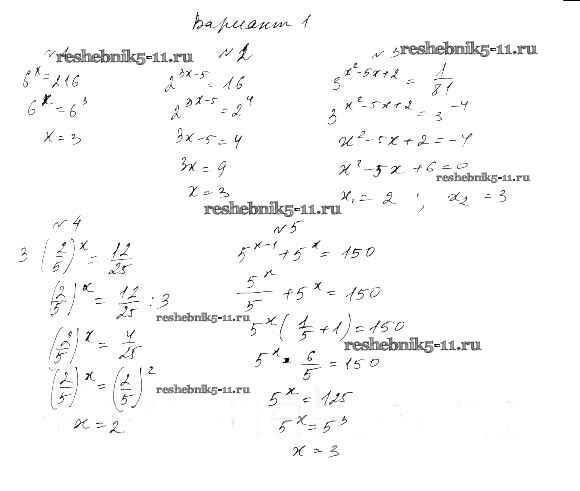 Вариант 1
№1
6^x = 216
6^x = 6^3
x = 3
№2
2^{3x-5} = 16
2^{3x-5} = 2^4
3x-5 = 4
3x = 9
x = 3
№3
3^{x^2-5x+2} = 1/81
3^{x^2-5x+2} = 3^{-4}
x^2-5x+2 = -4
x^2-5x+6 = 0
x₁ = 2 ; x₂ = 3
№4
3 (2/5)^x = 12/25
(2/5)^x = 12/25 : 3
(2/5)^x = 4/25
(2/5)^x = (2/5)^2
x = 2
№5
5^{x-1} + 5^x = 150
5^x/5 + 5^x = 150
5^x (1/5 + 1) = 150
5^x · 6/5 = 150
5^x = 125
5^x = 5^3
x = 3
reshebnik5-11.ru
reshebnik5-11.ru
reshebnik5-11.ru
reshebnik5-11.ru
reshebnik5-11.ru
reshebnik5-11.ru
reshebnik5-11.ru